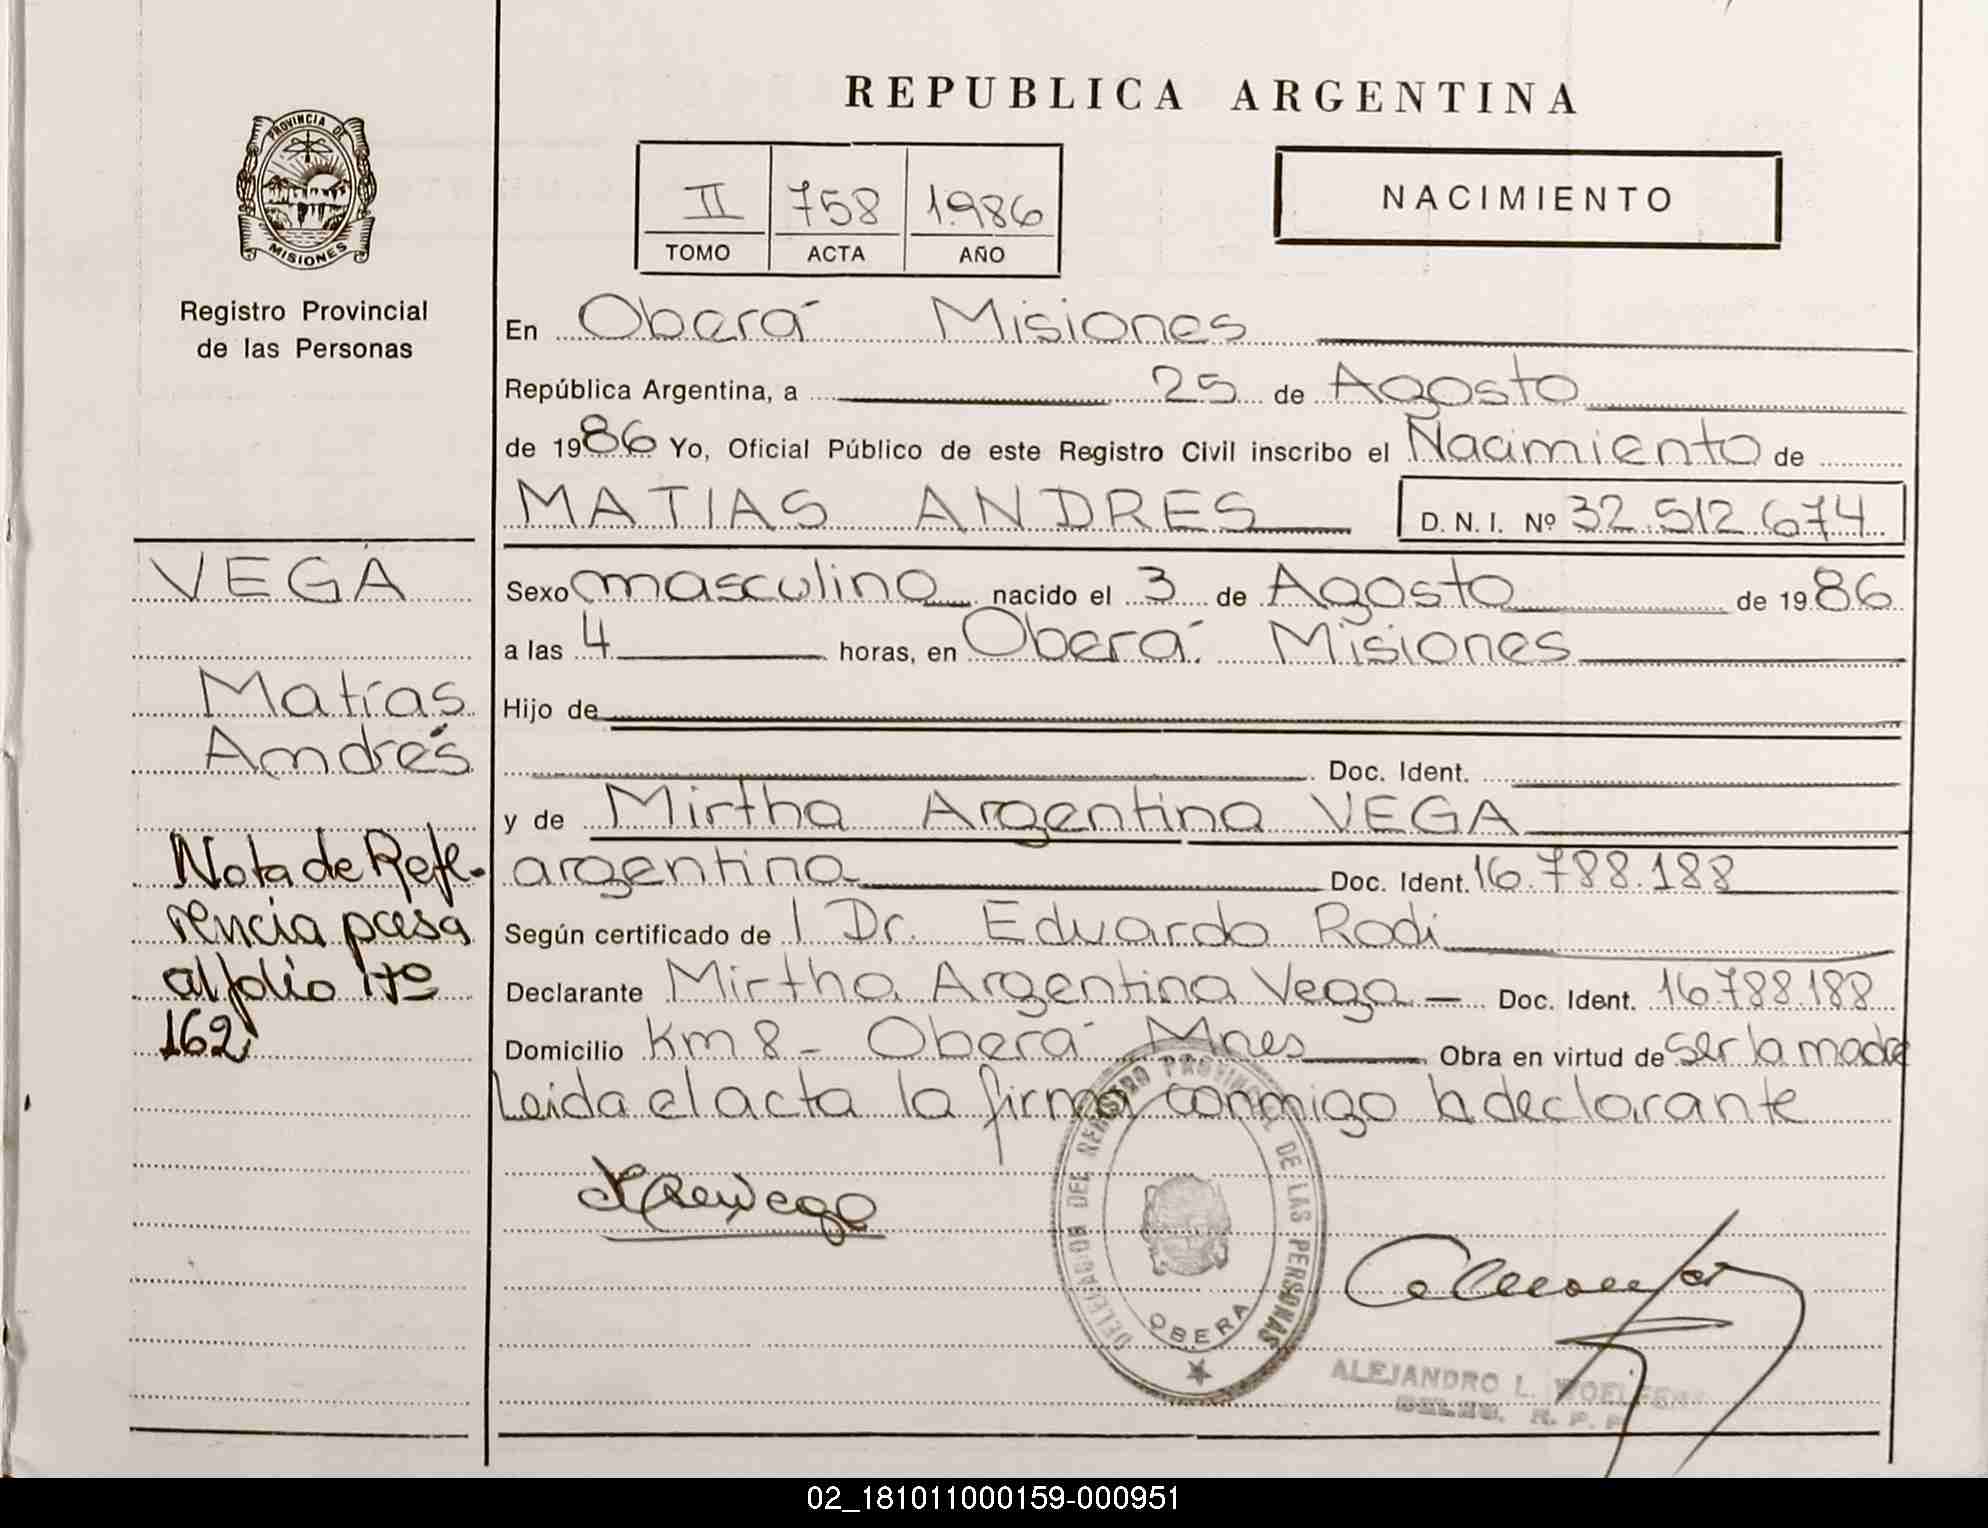 REPUBLICA ARGENTINA
PROVINCIA DE
MISIONES
Registro Provincial
de las Personas
II 758 1.986
TOMO ACTA AÑO
NACIMIENTO
En Oberá Misiones
República Argentina, a 25 de Agosto
de 1986 Yo, Oficial Público de este Registro Civil inscribo el Nacimiento de
MATIAS ANDRES D. N. I. Nº 32.512.674
VEGA
Matías
Andrés
Nota de Refe-
rencia pasa
al folio Nº
162
Sexo masculino nacido el 3 de Agosto de 1986
a las 4 horas, en Oberá Misiones
Hijo de
Doc. Ident.
y de Mirtha Argentina VEGA
argentina Doc. Ident. 16.788.188
Según certificado de l Dr. Eduardo Rodi
Declarante Mirtha Argentina Vega Doc. Ident. 16.788.188
Domicilio Km 8 - Oberá Mnes Obra en virtud de ser la madre
Leida el acta la firma conmigo la declarante
DELEGADOR DEL REGISTRO PROVINCIAL DE LAS PERSONAS
OBERA
ALEJANDRO L.
02_181011000159-000951